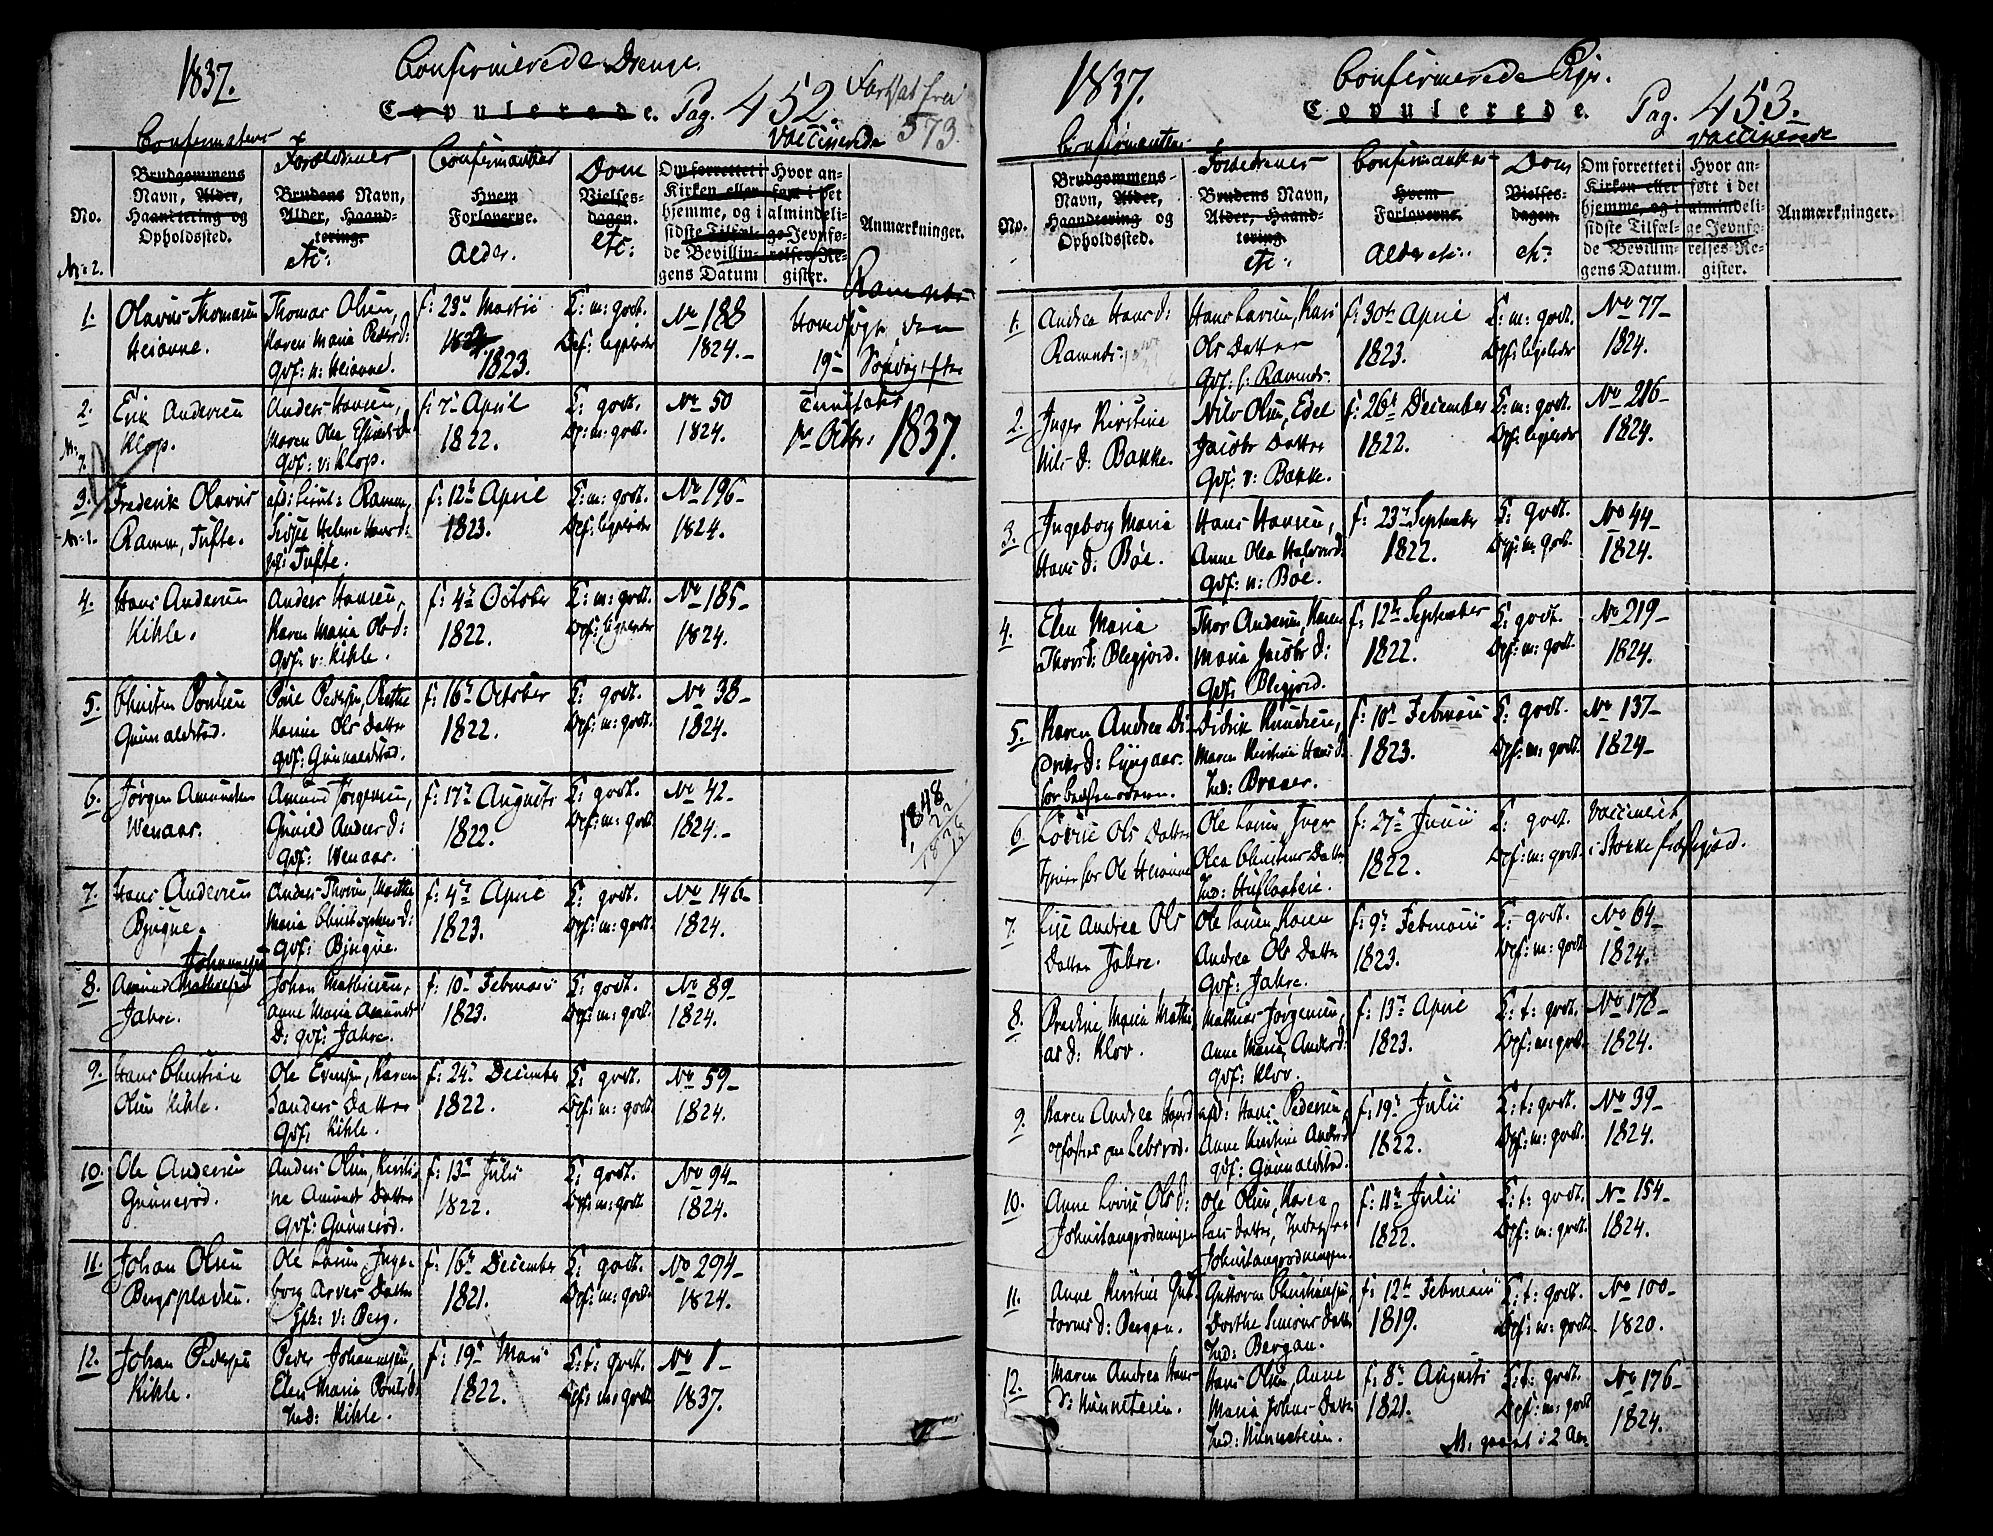 1837.
Confirmerede Drenge.
Copulerede. Pag. 452.
573.
Confirmatens Forældrenes Confirmantens Dom Vaccinerede
No. Brudgommens Navn, Alder, Haandtering og Opholdssted.
Brudens Navn, Alder, Haandtering. etc:
Hvem Forloverne. Alder.
Vielses-dagen. etc:
Om forrettet i Kirken eller hjemme, og i sidste Tilfælde Bevillingens Datum
Hvor anført i det almindelige Jevnførelses-Register.
Anmærkninger.
No: 2.
Ramnæs
1. Olavus Thomasen Thomas Olsen, f: 23de Martii T: m: godt. No 188
Heianne. Karen Maria Peders d: 1823. Opf: ligeleder 1824.
Gdf: n: Heianne.
19de Søndag efter
Trinitatis
1ste Octbr: 1837.
2. Erik Andersen Anders Hansen, f: 7de April T: godt. No 50
Klop. Maren Olea 1822. Op: m: godt. 1824.
Gdf: v: Klop.
No: 7.
3. Frederik Olavus afd: Lieut: Ramm, f: 12te April T: m: godt. No 196
Ramm, Tufte. Helene Hans d: 1823. Opf: ligeleder 1824.
Tufte.
No: 1.
4. Hans Andersen Anders Hansen, f: 4de October T: m: godt. No 185
Kihle. Karen Maria Ols d: 1822. Opf: ligeleder 1824.
Gdf: v: Kihle.
5. Christen Poulsen Poul Pedersen, f: 16de October T: godt. No 38
Gunnaldstad. Karine Ols Datter 1822. Opf: m: godt. 1824.
gdf: Gunnaldstad.
6. Jørgen Amundsen Amund Jørgensen, f: 17de Augusti T: godt. No 42
Wenaas. Gunild Anders d: 1822. Opf: m: godt. 1824.
Gdf: Wenaas.
1848
7. Hans Andersen Anders Thorsen, Marthe f: 4de April T: godt. No 146
Bjugne. Maria Christophers d: 1823. Opf: m: godt. 1824.
Gdf: Bjugne.
Johannesen
8. Amund Mathiesen Johan Mathiesen, f: 10de Februari T: godt. No 89
Jahre. Anne Maria Amunds 1823. Opf: m: godt. 1824.
D: gdf: Jahre.
9. Hans Christian Ole Evensen, Karen f: 24de December T: godt. No 59
Olsen Kihle. Sanders Datter 1822. Opf: m: godt 1824.
Gdf: Kihle.
10. Ole Andersen Anders Olsen, Kirsti- f: 13de Julii T: godt. No 94
Gunnerød. ne Amunds Datter 1822. Opf: m: godt 1824.
Gdf: Gunnerød.
11. Johan Olsen Ole Larsen, Inge- f: 16de December T: godt. No 294
Bergspladsen. borg Arves Datter 1821. Opf: m: godt. 1824.
v: Berg.
12. Johan Pedersen Peder Johannesen, f: 19de Maii T: t: godt. No 1
Kihle. Elen Maria Pouls d: 1822. Opf: m: godt 1837.
Ind: Kihle.
1837.
Confirmerede Piger.
Copulerede. Pag. 453.
Confirmantens Forældrenes Confirmantens Dom Vaccinerede
No. Brudgommens Navn, Alder, Haandtering og Opholdssted.
Brudens Navn, Alder, Haandtering. etc:
Hvem Forloverne. Alder etc:
Vielses-dagen. etc:
Om forrettet i Kirken eller hjemme, og i sidste Tilfælde Bevillingens Datum.
Hvor anført i det almindelige Jevnførelses-Register.
Anmærkninger.
1. Andrea Hans d: Hans Larsen, Kari f: 30te April T: m: godt. No 77
Ramnæs. Ols Datter 1823. Opf: ligeleder 1824.
Gdf: Ramnæs.
2. Inger Kirstine Nils Olsen, Edel f: 26de December T: m: godt. No 216
Nils d: Bakke. Jacobs Datter 1822. Opf: ligeleder 1824.
Gdf: v: Bakke.
3. Ingeborg Maria Hans Hansen, f: 23de September T: godt. No 44
Hans d: Bøe. Anne Olea Halvors d: 1822. Opf: m: godt. 1824.
Gdf: n: Bøe.
4. Elen Maria Thor Andersen, Karen f: 12te September T: godt. No 219
Thors d: Blegjord. Maria Jacobs d: 1822. Opf: m: godt. 1824.
Gdf: Blegjord.
5. Karen Andrea Di- Didrik Knudsen, f: 10de Februarii T: godt. No 137
driks d: Lyngaas. Maren Kirstine Hans d: 1823. Opf: m: godt. 1824
Ind: Braaer.
6. Lovise Ols Datter Ole Larsen, f: 27de Junii T: godt. Vaccineret
tjener hos Ole Heianne Olea Christens Datter 1822. Opf: m: godt i Stokke Præstegjeld.
Ind:
7. Lise Andrea Ols Ole Larsen, Karen f: 9de Februarii T: godt. No 64
Datter Jahre. Andrea Ols Datter 1823. Opf: m: godt 1824.
Gdf: Jahre.
8. Maria Mathi- Mathias Jørgensen, f: 13de April T: t: godt. No 178
as d: Klov. Anne Maria Anders d: 1823. Opf: m: godt. 1824.
gdf: Klov.
9. Karen Andrea Hans d afd: Hans Pedersen f: 19de Julii T: t: godt. No 39
Anne Kirstine Anders d 1822. Opf: m: godt. 1824.
gdf: Gunnaldstad.
10. Anne Lovise Ols d: Ole Olsen, Karen f: 11te Julii T: t: godt. No 154
Lars Datter, 1822. Opf: m: godt. 1824.
11. Anne Kirstine Gut- Guttorm Christiansen, f: 12te Februarii T: t: godt. No 100
torms d: Bergan. Dorthe Simons Datter 1819. Opf: m: godt. 1820.
Ind: Bergan.
12. Maren Andrea Hans- Hans Olsen, Anne f: 8de Augusti T: t: godt. No 176
d: Maria Johns Datter 1821. Opf: m: godt 1824.
Ind:
i 2 Aar